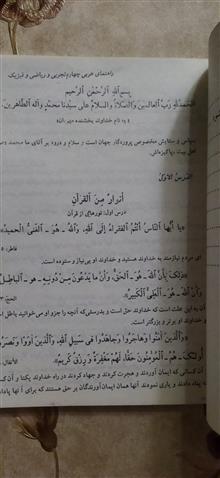 راهنمای عربی چهارم‌تجربی و ریاضی و فیزیک
بِسمِ اللّٰهِ الرَّحْمٰنِ الرَّحیمِ
الحَمدُ لِلّٰهِ رَبِّ العالَمینَ وَالصَّلاةُ وَ السلامُ علی سَیِّدنا محمّدٍ وآلِه الطّاهرین
به نام خداوند بخشنده مهربان
سپاس و ستایش مخصوص پروردگار جهان است و سلام و درود بر آقای ما محمد و
اهل بیت پاکیزه‌اش
الدّرسُ الاوّلُ
أنوارٌ مِنَ القرآنِ
درس اول: نورهایی از قرآن
«یا أیُّها النّاسُ أنتُم الفُقراءُ إلَی اللّهِ، وَاللّهُ ـ هُوَ ـ الغَنیُّ الحَمیدُ»
فاطر/
ای مردم نیازمند به خداوند هستید و خداوند او بی‌نیاز و ستوده است.
«ذٰلِکَ بأنَّ اللّهَ ـ هُوَ ـ الحَقُّ، وَأنَّ ما یَدْعُونَ مِنْ دُونِهِ ـ هو ـ الباطِلُ
وَأنَّ اللّهَ ـ هُوَ ـ العَلِیُّ الکَبیرُ».
الحج/
آن به این علت است که خداوند حق است و بدرستی‌که آنچه را بجزو او می‌خوانید باطل
خداوند او برتر و بزرگتر است.
«وَالَّذینَ آمَنُوا وَهاجَرُوا وَجاهَدُوا فی سَبیلِ اللّهِ، وَالَّذینَ آوَوْا وَنَصَرُوا
أولئکَ ـ هُمُ ـ المُؤمِنُونَ حَقّاً، لَهُم مَغْفِرَةٌ وَ رِزْقٌ کَریمٌ».
الأنفال/
کسانی که ایمان آوردند و هجرت کردند و جهاد کردند در راه خداوند و کسانی که
پناه دادند و یاری نمودند آنها همان ایمان‌آورندگان بر حق هستند که برای آنها